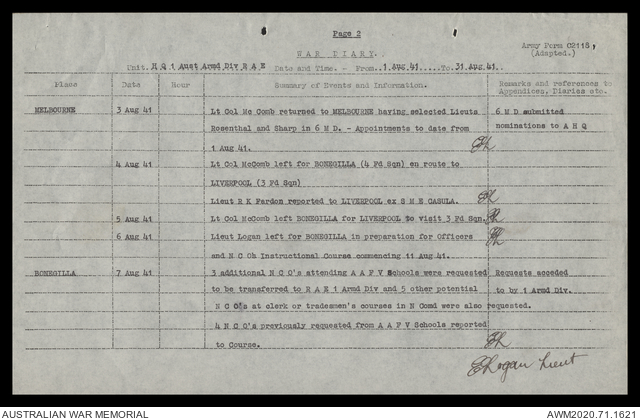 Page 2
Army Form C2118,
(Adapted.)
WAR DIARY.
Unit. H Q 1 Aust Armd Div R A E Date and Time. - From. 1 Aug 41 .... To. 31 Aug 41..
Place Date Hour Summary of Events and Information. Remarks and references to
Appendices, Diaries etc.
MELBOURNE 3 Aug 41 Lt Col Mc Comb returned to MELBOURNE having selected Lieuts 6 M D submitted
Rosenthal and Sharp in 6 M D. - Appointments to date from nominations to A H Q
1 Aug 41. EL
4 Aug 41 Lt Col McComb left for BONEGILLA (4 Fd Sqn) en route to
LIVERPOOL (3 Fd Sqn)
Lieut R K Fardon reported to LIVERPOOL ex S M E CASULA. EL
5 Aug 41 Lt Col McComb left BONEGILLA for LIVERPOOL to visit 3 Fd Sqn. EL
6 Aug 41 Lieut Logan left for BONEGILLA in preparation for Officers EL
and N C Os Instructional Course commencing 11 Aug 41.
BONEGILLA 7 Aug 41 3 additional N C O's attending A A F V Schools were requested Requests acceded
to be transferred to R A E 1 Armd Div and 5 other potential to by 1 Armd Div.
N C O's at clerk or tradesmen's courses in N Comd were also requested.
4 N C O's previously requested from A A F V Schools reported
to Course. EL
ELogan Lieut
AUSTRALIAN WAR MEMORIAL AWM2020.71.1621